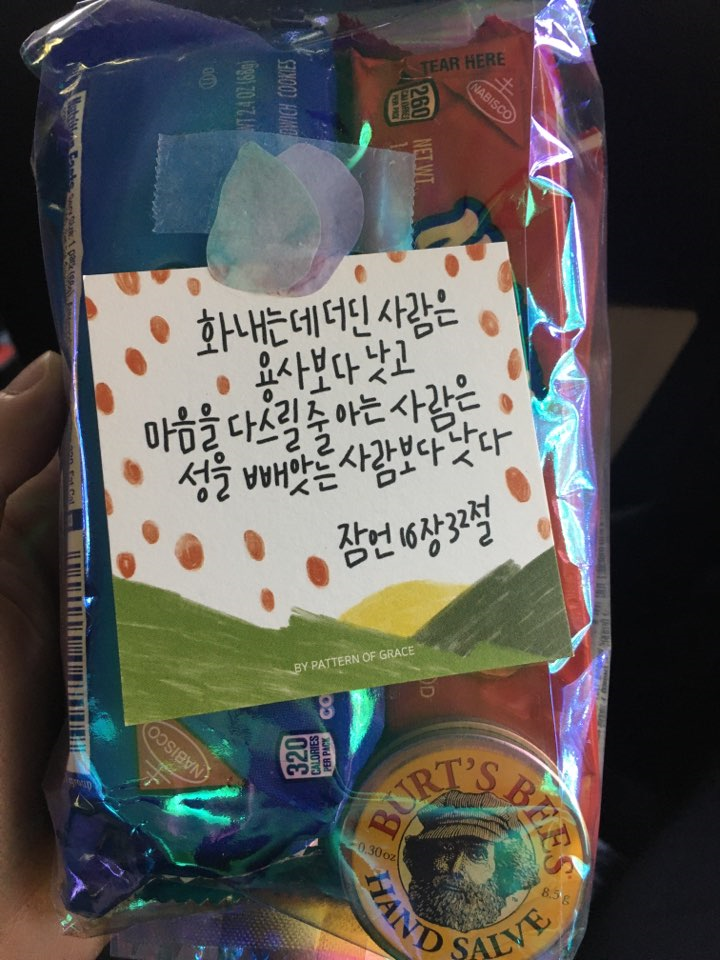 TEAR HERE
NABISCO
260
NET WT
WT 2.4 OZ (68g)
SANDWICH COOKIES
화내는데 더딘 사람은
용사보다 낫고
마음을 다스릴 줄 아는 사람은
성을 빼앗는 사람보다 낫다
잠언 16장 32절
BY PATTERN OF GRACE
NABISCO
320
CALORIES
PER PACK
BURT'S BEES
0.30 oz
8.5 g
HAND SALVE